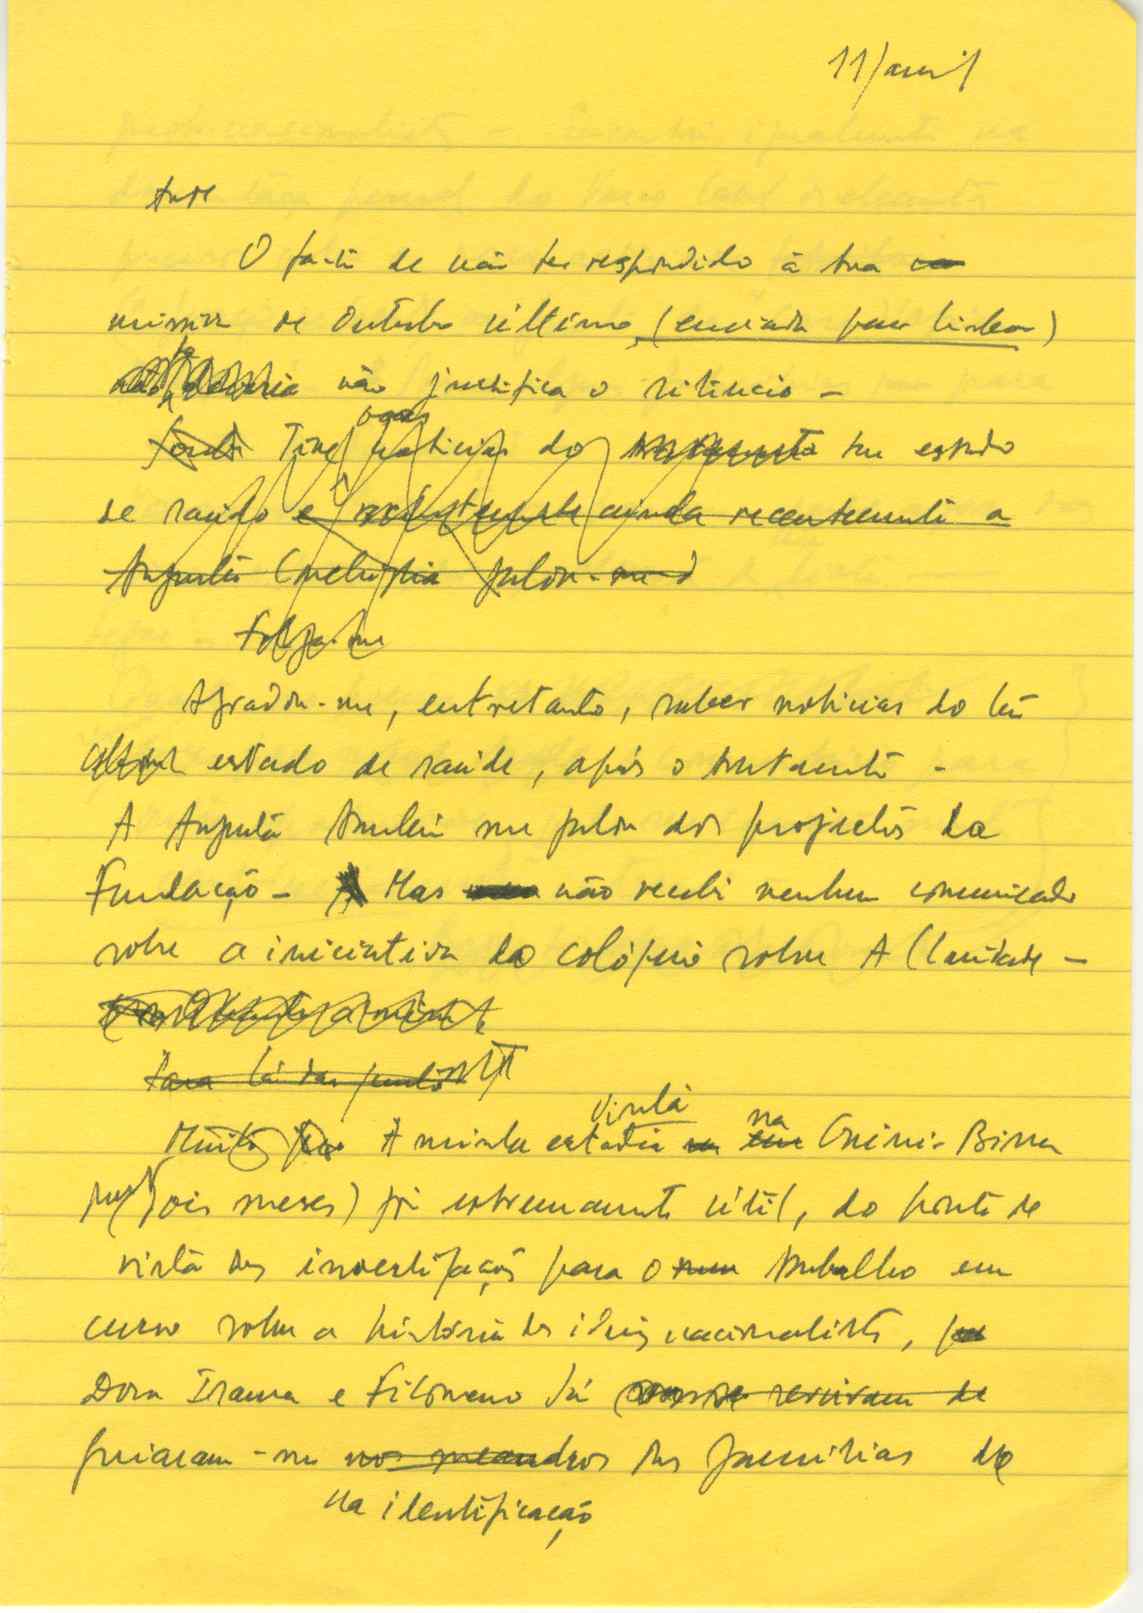 11/abril
O facto de não ter respondido à tua
missiva de Outubro último, (enviada para Lisboa)
não justifica o silêncio -
Tive notícias do teu estado
de saúde e ainda recentemente a
Augusta Conchiglia falou-me d
Folga-me
Agradou-me, entretanto, saber notícias do teu
estado de saúde, após o tratamento -
A Augusta também me falou dos projectos da
Fundação - Mas não recebi nenhum comunicado
sobre a iniciativa do colóquio sobre A Claridade -
Para lá das
visita na
Muito A minha estadia em Guiné-Bissau
dois meses) foi extremamente útil, do ponto de
vista das investigações para o meu trabalho em
curso sobre a história das ideias nacionalistas,
Dona Irama e Filomeno Sá serviram de
guiaram-me nos meandros das famílias de
na identificação